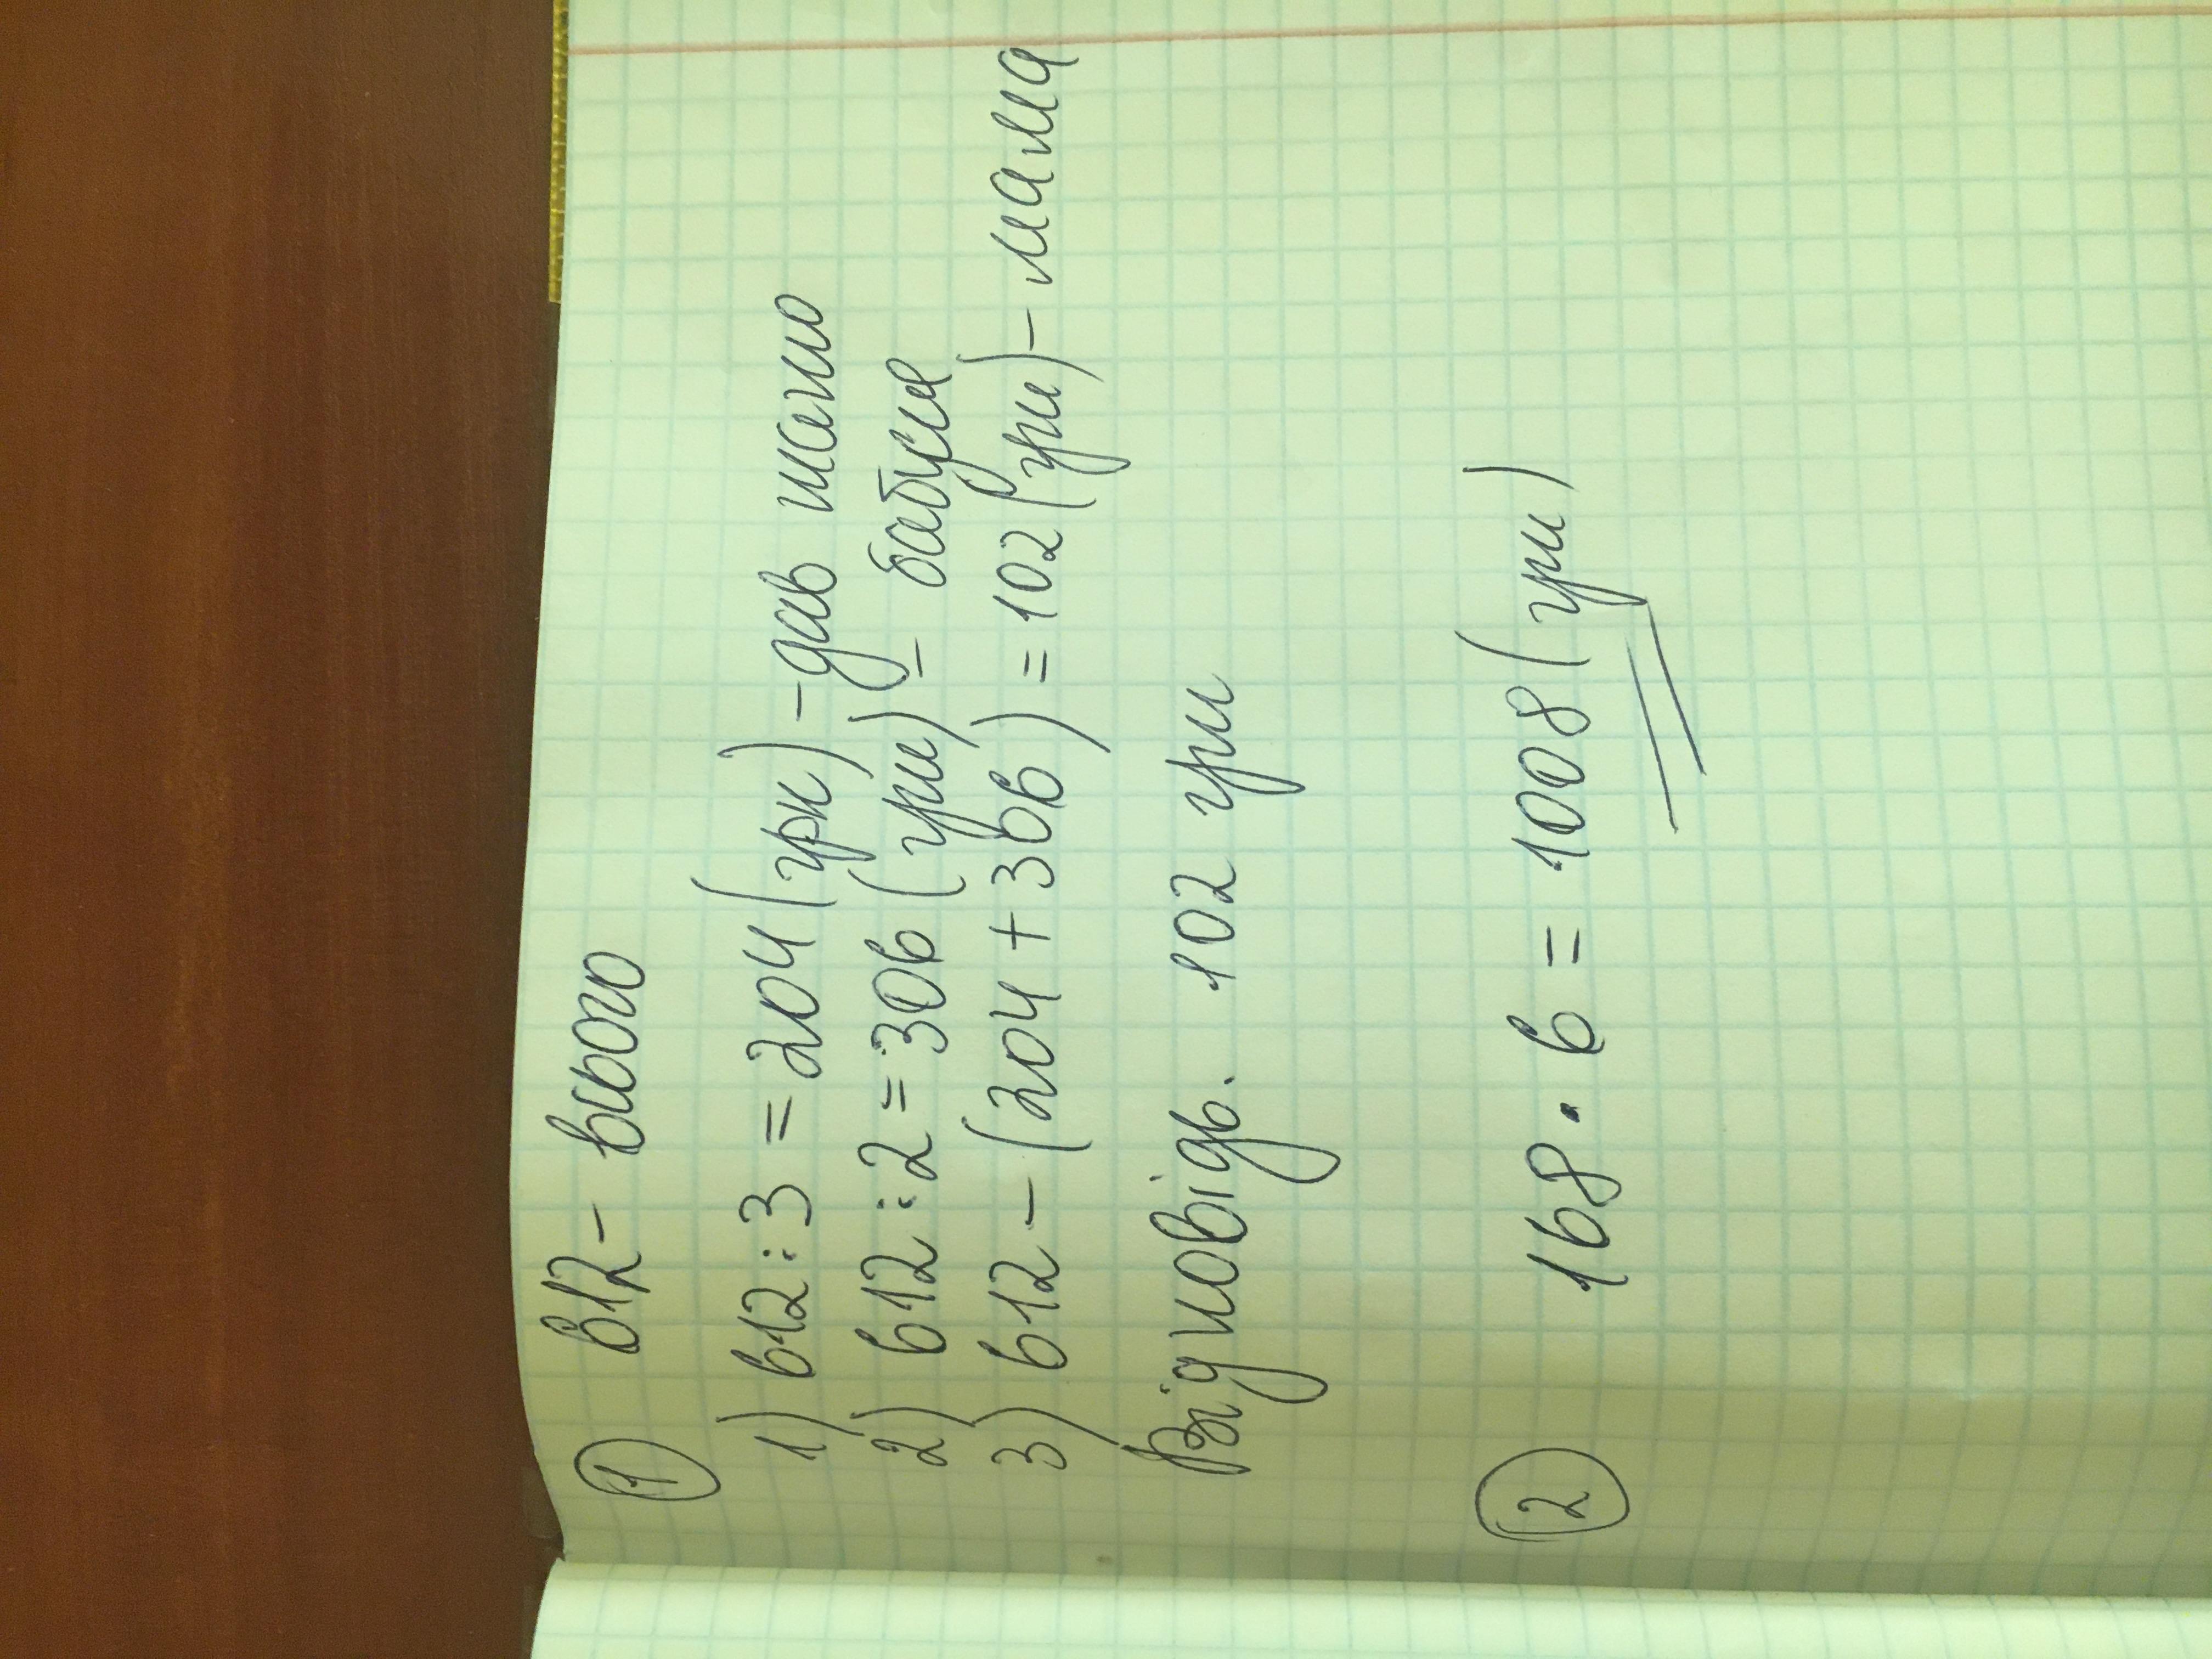 ① 612 - всього
1) 612 : 3 = 204 (грн) - дав тато
2) 612 : 2 = 306 (грн) - бабуся
3) 612 - (204 + 306) = 102 (грн) - мама
Відповідь. 102 грн
② 168 · 6 = 1008 (грн)